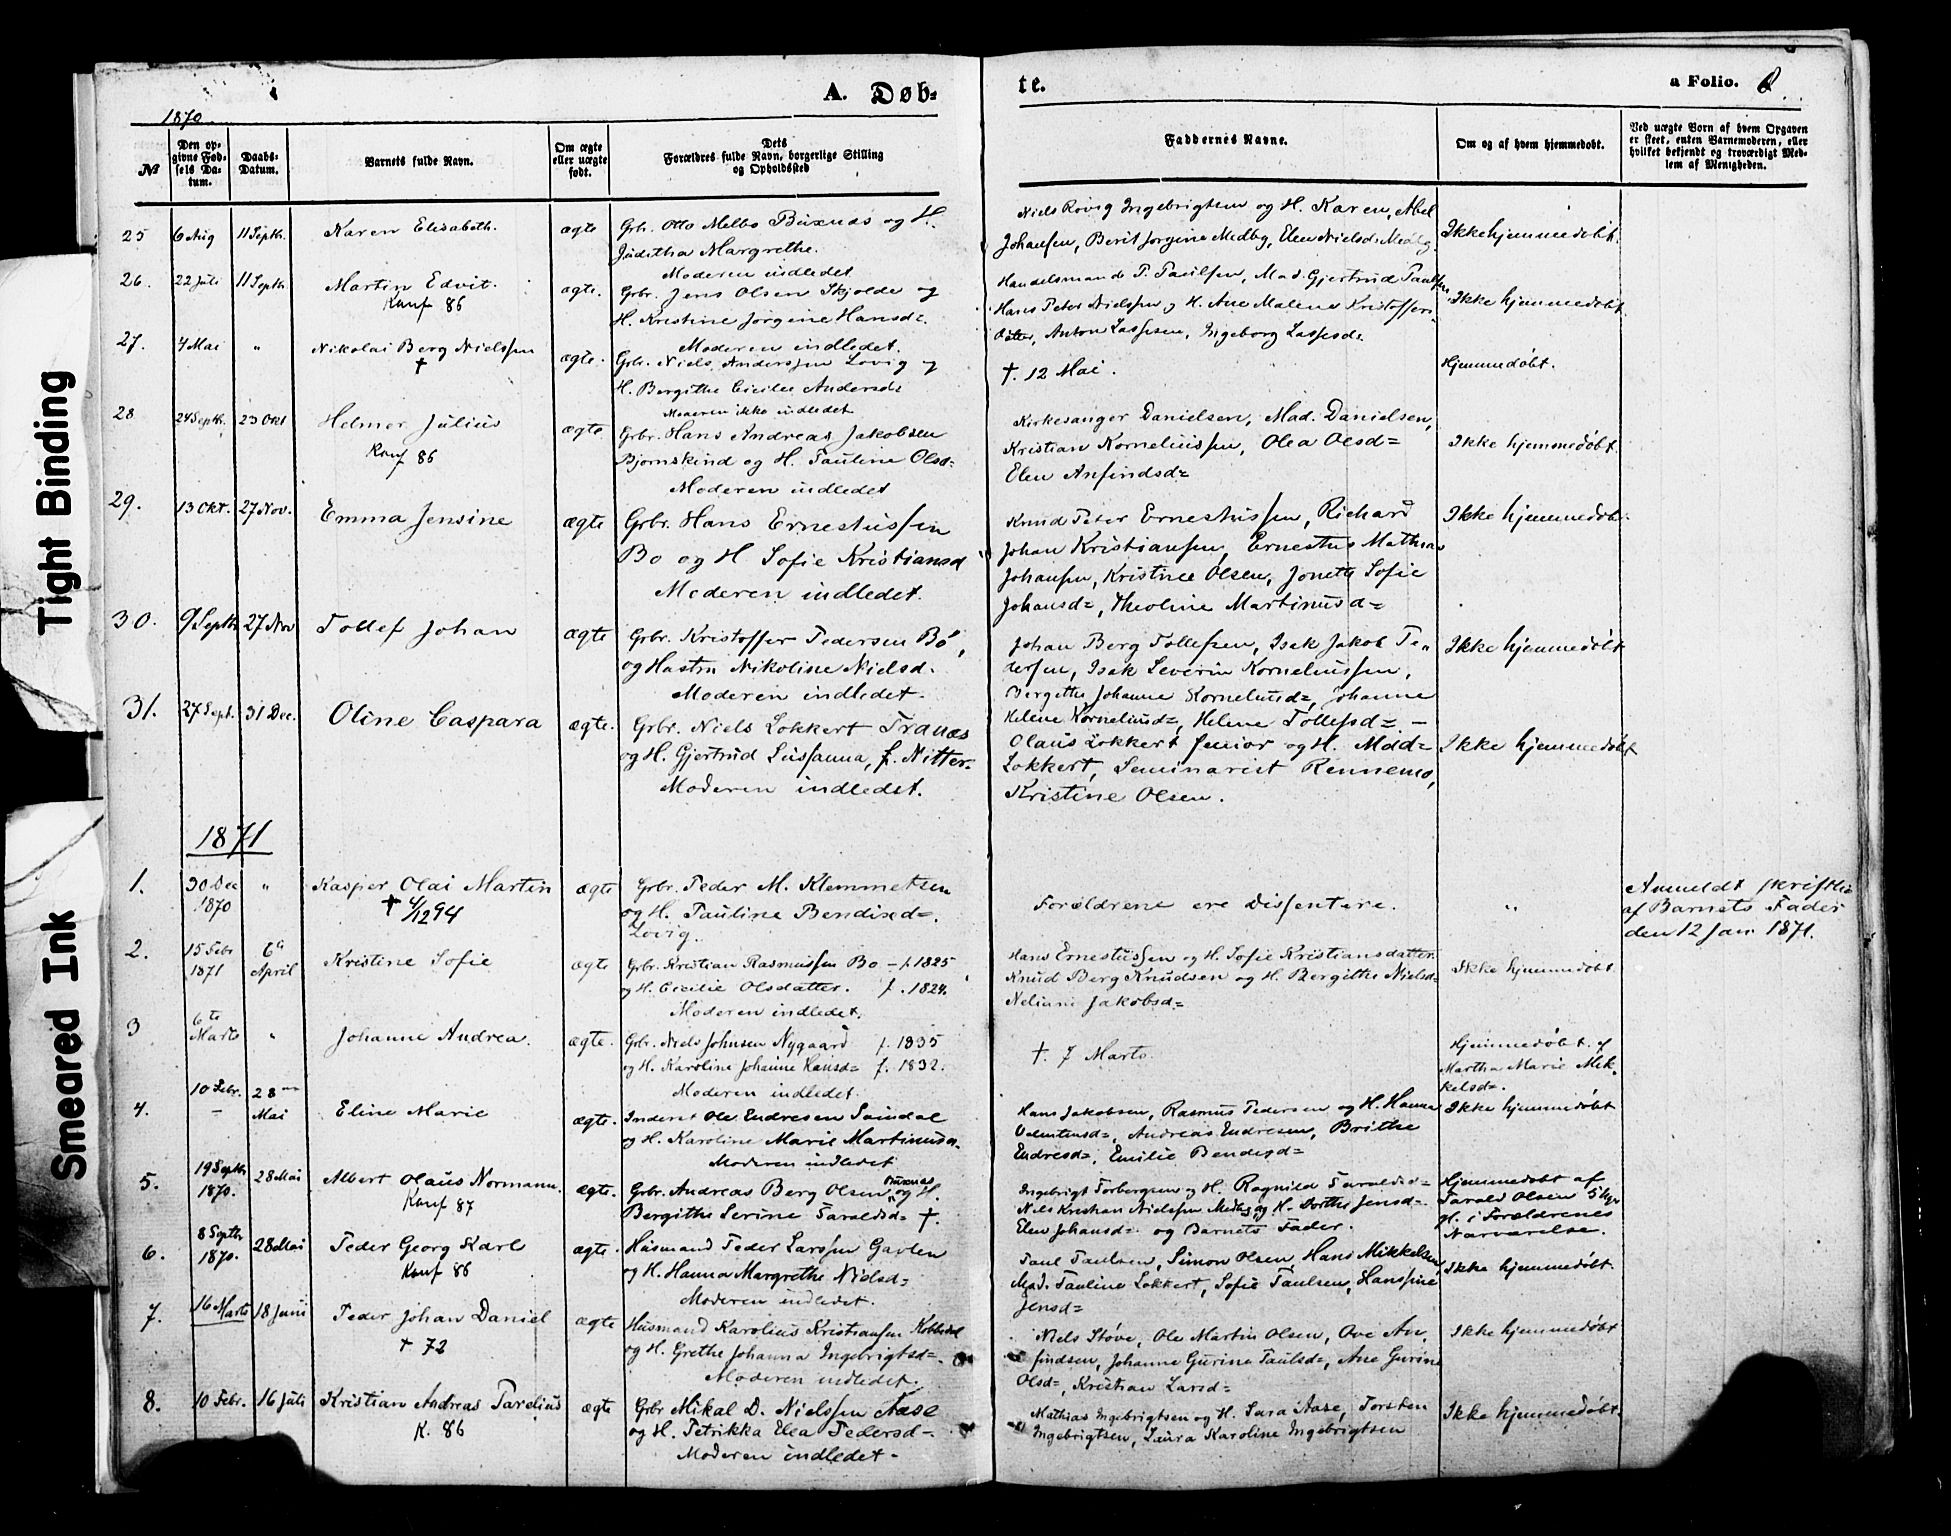 Tight Binding
Smeared Ink
A. Døb-
te.
a Folio. 8
1870
№
Den op-
givne Fød-
sels Da-
tum.
Daabs-
Datum.
Barnets fulde Navn.
Om ægte
eller uægte
født.
Dets
Forældres fulde Navn, borgerlige Stilling
og Opholdssted
Faddernes Navne.
Om og af hvem hjemmedøbt.
Ved uægte Born af hvem Opgaven
er skeet, enten Barnemoderen, eller
hvilket bekjendt og troværdigt Med-
lem af Menigheden.
25 6 Aug 11 Septb. Karen Elisabeth. ægte Grb. Otto Melbo Buxnæs og H.
Juditha Margrethe.
Moderen indledet
Niels Rovig Ingebrigtsen og H. Karen, Abel
Johansen, Berit Jorgine Medby, Elen Nielsd. Medby.
Ikke hjemmedøbt.
26. 22 Juli 11 Septb Martin Edvit. ægte. Grb. Jens Olsen Skjolde og
Konf 86
H. Kristine Jørgine Hansd=.
Moderen indledet.
Handelsmand P. Paulsen, Mad. Gjertrud Paulsen,
Hans Peter Nielsen og H. Ane Malene Kristoffers-
datter, Anton Lassesen, Ingeborg Lassesd=
Ikke hjemmedøbt.
27. 4 Mai " Nikolai Berg Nielssen ægte. Grb. Niels Anderssen Lovig og
†
H. Bergithe Cicilie Andersd=
Moderen ikke indledet
†. 12 Mai.
Hjemmedøbt.
28 24 Septb. 23 Okt Helmer Julius ægte Grb. Hans Andreas Jakobsen
Konf 86
Bjornskind og H. Pauline Olsd=
Moderen indledet
Kirkesanger Danielsen, Mad. Danielsen,
Kristian Korneliussen, Olea Olsd=
Elen Anfindsd=
Ikke hjemmedøbt.
29. 13 Okt. 27 Nov. Emma Jensine ægte Grb. Hans Ernestussen
Bo og H Sofie Kristiansd
Moderen indledet.
Knud Peter Ernestussen, Richard
Johan Kristiansen, Ernestus Mathias
Johansen, Kristine Olsen, Jonette Sofie
Johansd=, Theoline Martinusd=
Ikke hjemmedøbt.
30. 9 Septb 27 Nov Tollef Johan ægte Grb. Kristoffer Pedersen Bö,
og Hustru Nikoline Nielsd.
Moderen indledet.
Johan Berg Tollefsen, Isak Jakob Pe-
dersen, Isak Severin Korneliussen,
Bergithe Johanne Korneliusd=, Johanne
Helene Korneliusd=, Helene Tollefsd= -
Ikke hjemmedøbt
31. 27 Sept. 31 Dec. Oline Caspara ægte. Grb. Niels Lokkert Tranæs
og H. Gjertrud Sussanna, f. Nitter-
Moderen indledet.
Olaus Lokkert Senior og H. Mad=
Lokkert, Seminarist Rennemo,
Kristine Olsen.
Ikke hjemmedøbt
1871
1. 30 Dec 1870 " Kasper Olai Martin ægte Grb. Peder M. Klemmetsen
† 4/12 94
og H. Pauline Bendixd=.
Lovig.
Forældrene ere Dissentere.
"
Anmeldt skriftli=
af Barnets Fader
den 12 Jan 1871.
2. 15 Febr 1871 6 April Kristine Sofie ægte Grb. Kristian Rasmussen Bo - f. 1825
og H. Cicilie Olsdatter. f. 1824.
Moderen indledet.
Hans Ernestussen og H. Sofie Kristiansdatter.
Knud Berg Knudsen og H. Bergithe Nielsd=
Neliane Jakobsd=
Ikke hjemmedøbt
3 6te Marts " Johanne Andrea. ægte. Grb. Niels Johnsen Nygaard f. 1835
og H. Karoline Johanne Hansd= f. 1832.
Moderen indledet
†. 7 Marts.
Hjemmedøbt. af
Martha Marie Mik-
kelsd=.
4. 10 Febr. - 28 Mai Eline Marie ægte. Inderst Ole Endresen Saindal
og H. Karoline Marie Martinusd.
Moderen indledet
Hans Jakobsen, Rasmus Pedersen og H. Hanna
Valentinsd=, Andreas Endresen, Brithe
Endresd=, Emilie Bendixd=
Ikke hjemmedøbt
5. 19 Septb 1870. 28 Mai Albert Olaus Normann. ægte. Grb. Andreas Berg Olsen Buxnæs og H.
Konf 87
Bergithe Serine Taraldsd= †.
Ingebrigt Torbergsen og H. Ragnild Taraldsd=
Nils Kristian Nielssen Medby og H. Dorthe Jensd=
Elen Johansd= og Barnets Fader.
Hjemmedobt af
Tarald Olsen
i Forældrenes
Nærværelse.
6. 8 Septb 1870. 28 Mai Peder Georg Karl ægte. Husmand Peder Larssen Gavlen
Konf 86
og H. Hanna Margrethe Nielsd=
Moderen indledet.
Paul Paulsen, Simon Olsen, Hans Mikkelsen,
Mad. Pauline Lokkert, Sofie Paulsen, Hansine
Jensd=
Ikke hjemmedøbt.
7. 16 Marts 18 Juni Peder Johan Daniel ægte Husmand Karolius Kristiansen
† 72
og H. Grethe Johanna Ingebrigtsd=.
Moderen indledet.
Niels Støve, Ole Martin Olsen, Ove An-
findsen, Johanne Gurine Paulsd=, Ane Gurine
Olsd=, Kristian Larsd=
Ikke hjemmedøbt
8. 10 Febr. 16 Juli Kristian Andreas Parelius ægte Grb Mikal D. Nielssen Aase
K. 86
og H. Petrikka Elea Pedersd=
Moderen indledet-
Mathias Ingebrigtsen og H. Sara Aase, Torsten
Ingebrigtsen, Laura Karoline Ingebrigtsen
Ikke hjemmedøbt.